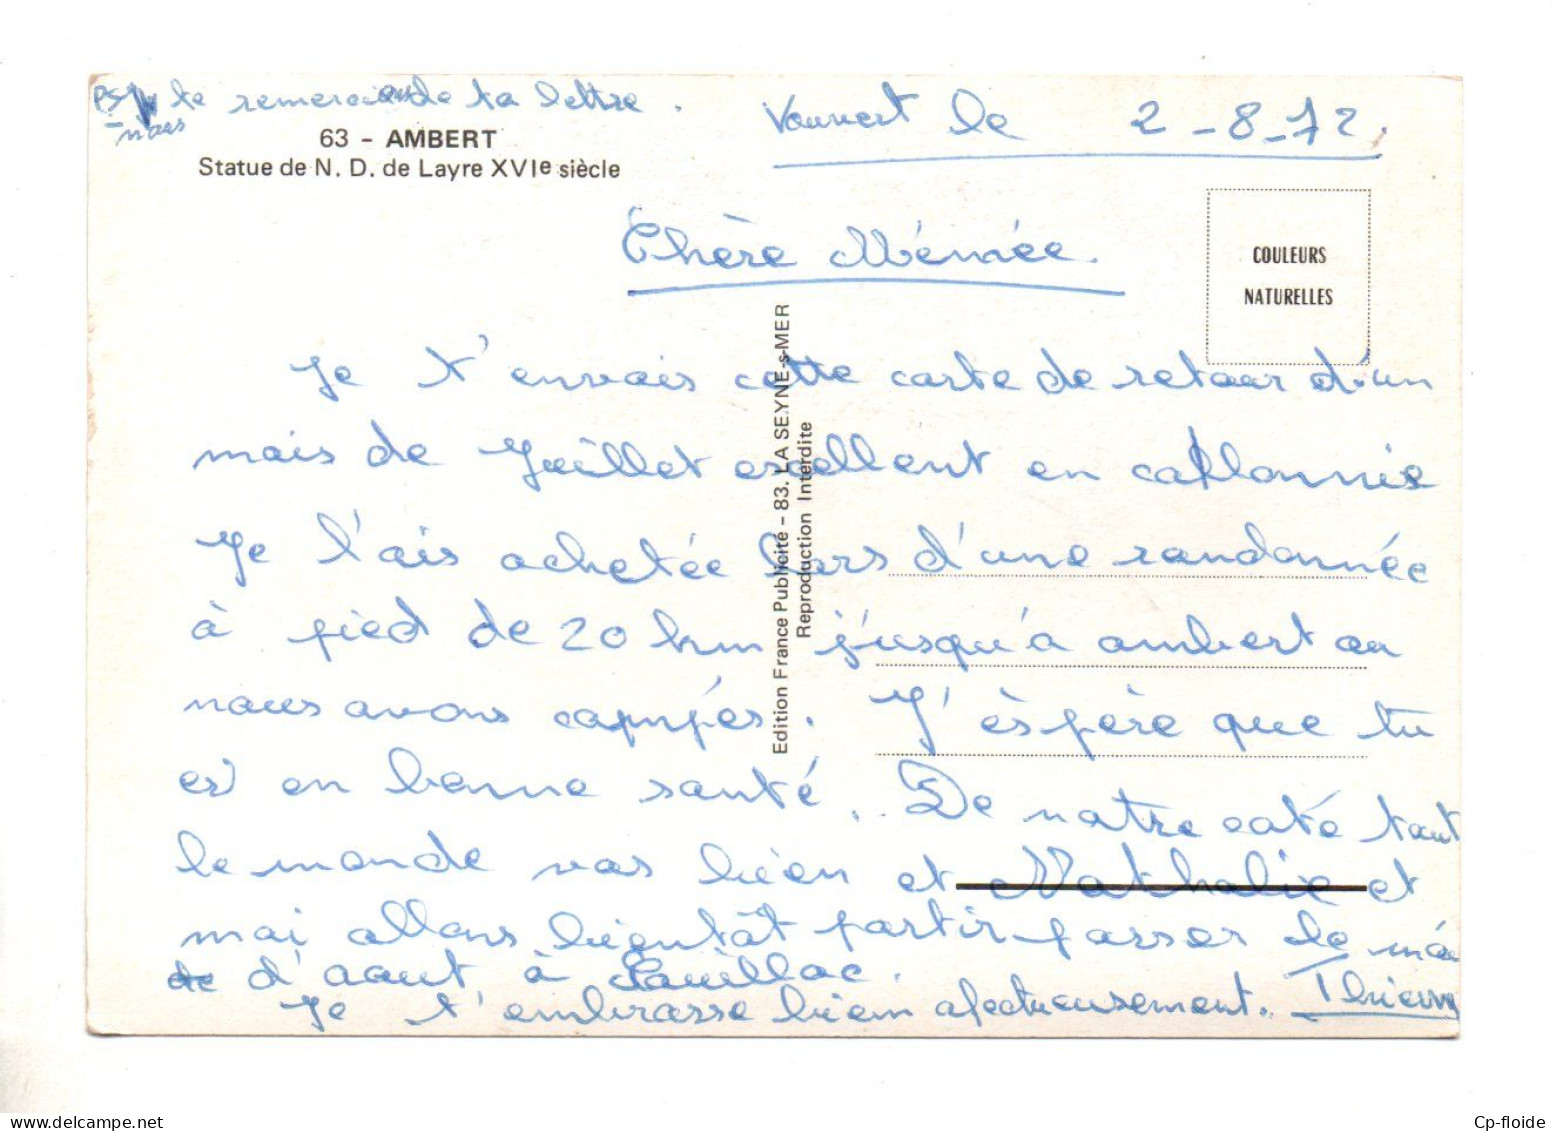 PS te remercions de ta lettre.
nous
Vauvert le 2-8-72.
63 - AMBERT
Statue de N. D. de Layre XVIe siècle
COULEURS
NATURELLES
Chère Mémée.
Edition France Publicité - 83. LA SEYNE-s-MER
Reproduction Interdite
Je t'envois cette carte de retour d'un
mois de Juillet excellent en collonnie
Je l'ais achetée lors d'une randonnée
à pied de 20 km j'usqu'à ambert ou
nous avons campés. J'èspère que tu
es en bonne santé. De notre coté tout
le monde vas bien et Nathalie et
moi allons bientôt partir passer le moi
de d'aout à Pauillac.
Je t'embrasse bien afectueusement. Thierry
Cp-floide
www.delcampe.net